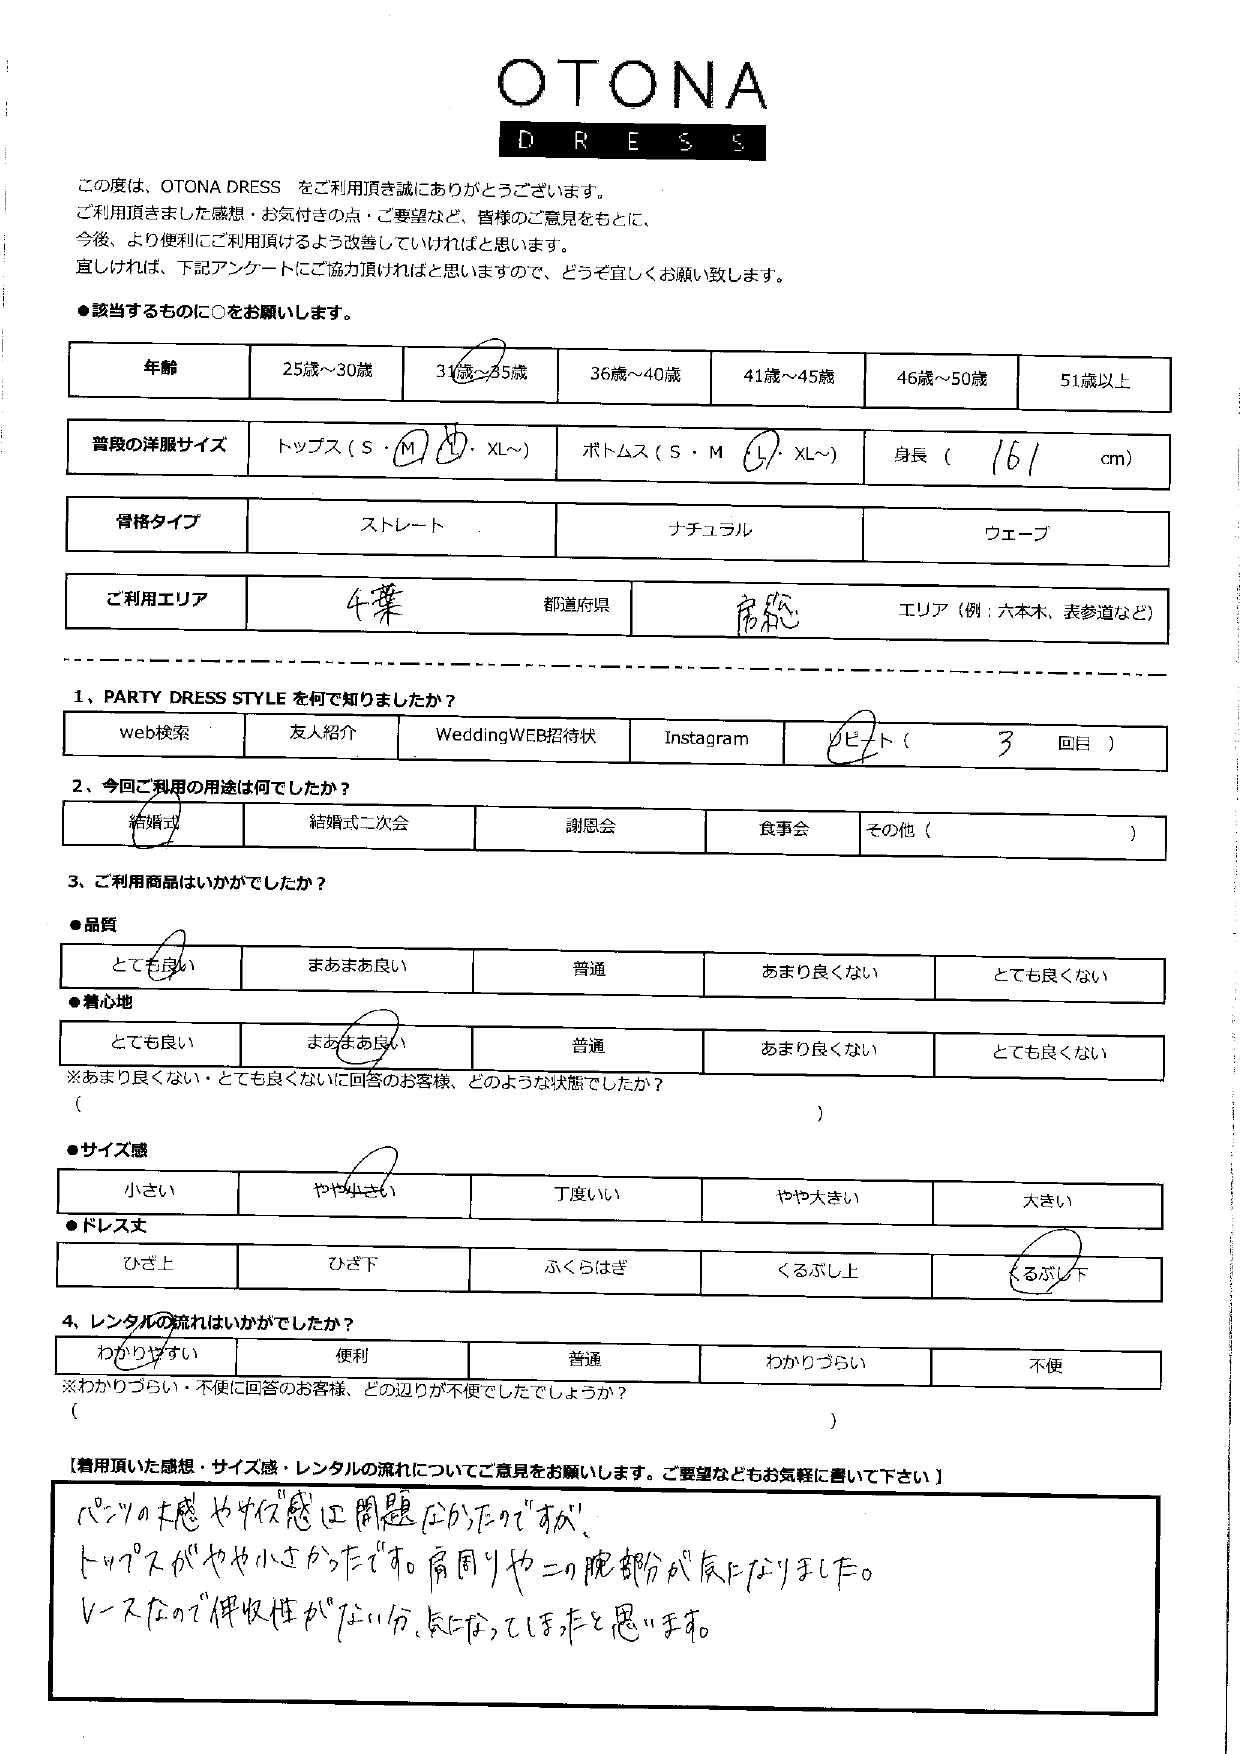 OTONA
DRESS
この度は、OTONA DRESS をご利用頂き誠にありがとうございます。
ご利用頂きました感想・お気付きの点・ご要望など、皆様のご意見をもとに、
今後、より便利にご利用頂けるよう改善していければと思います。
宜しければ、下記アンケートにご協力頂ければと思いますので、どうぞ宜しくお願い致します。
●該当するものに○をお願いします。
年齢 25歳～30歳 31歳～35歳 36歳～40歳 41歳～45歳 46歳～50歳 51歳以上
普段の洋服サイズ トップス（ S ・ M ・ L ・ XL～） ボトムス（ S ・ M ・ L ・ XL～） 身長 （ 161 cm）
骨格タイプ ストレート ナチュラル ウェーブ
ご利用エリア 千葉 都道府県 房総 エリア（例：六本木、表参道など）
1、PARTY DRESS STYLE を何で知りましたか？
web検索 友人紹介 WeddingWEB招待状 Instagram リピート（ 3 回目 ）
2、今回ご利用の用途は何でしたか？
結婚式 結婚式二次会 謝恩会 食事会 その他（ ）
3、ご利用商品はいかがでしたか？
●品質
とても良い まあまあ良い 普通 あまり良くない とても良くない
●着心地
とても良い まあまあ良い 普通 あまり良くない とても良くない
※あまり良くない・とても良くないに回答のお客様、どのような状態でしたか？
（ ）
●サイズ感
小さい やや小さい 丁度いい やや大きい 大きい
●ドレス丈
ひざ上 ひざ下 ふくらはぎ くるぶし上 くるぶし下
4、レンタルの流れはいかがでしたか？
わかりやすい 便利 普通 わかりづらい 不便
※わかりづらい・不便に回答のお客様、どの辺りが不便でしたでしょうか？
（ ）
【着用頂いた感想・サイズ感・レンタルの流れについてご意見をお願いします。ご要望などもお気軽に書いて下さい】
パンツの丈感やサイズ感は問題なかったのですが、
トップスがやや小さかったです。肩周りや二の腕部分が気になりました。
レースなので伸収性がない分、気になってしまったと思います。